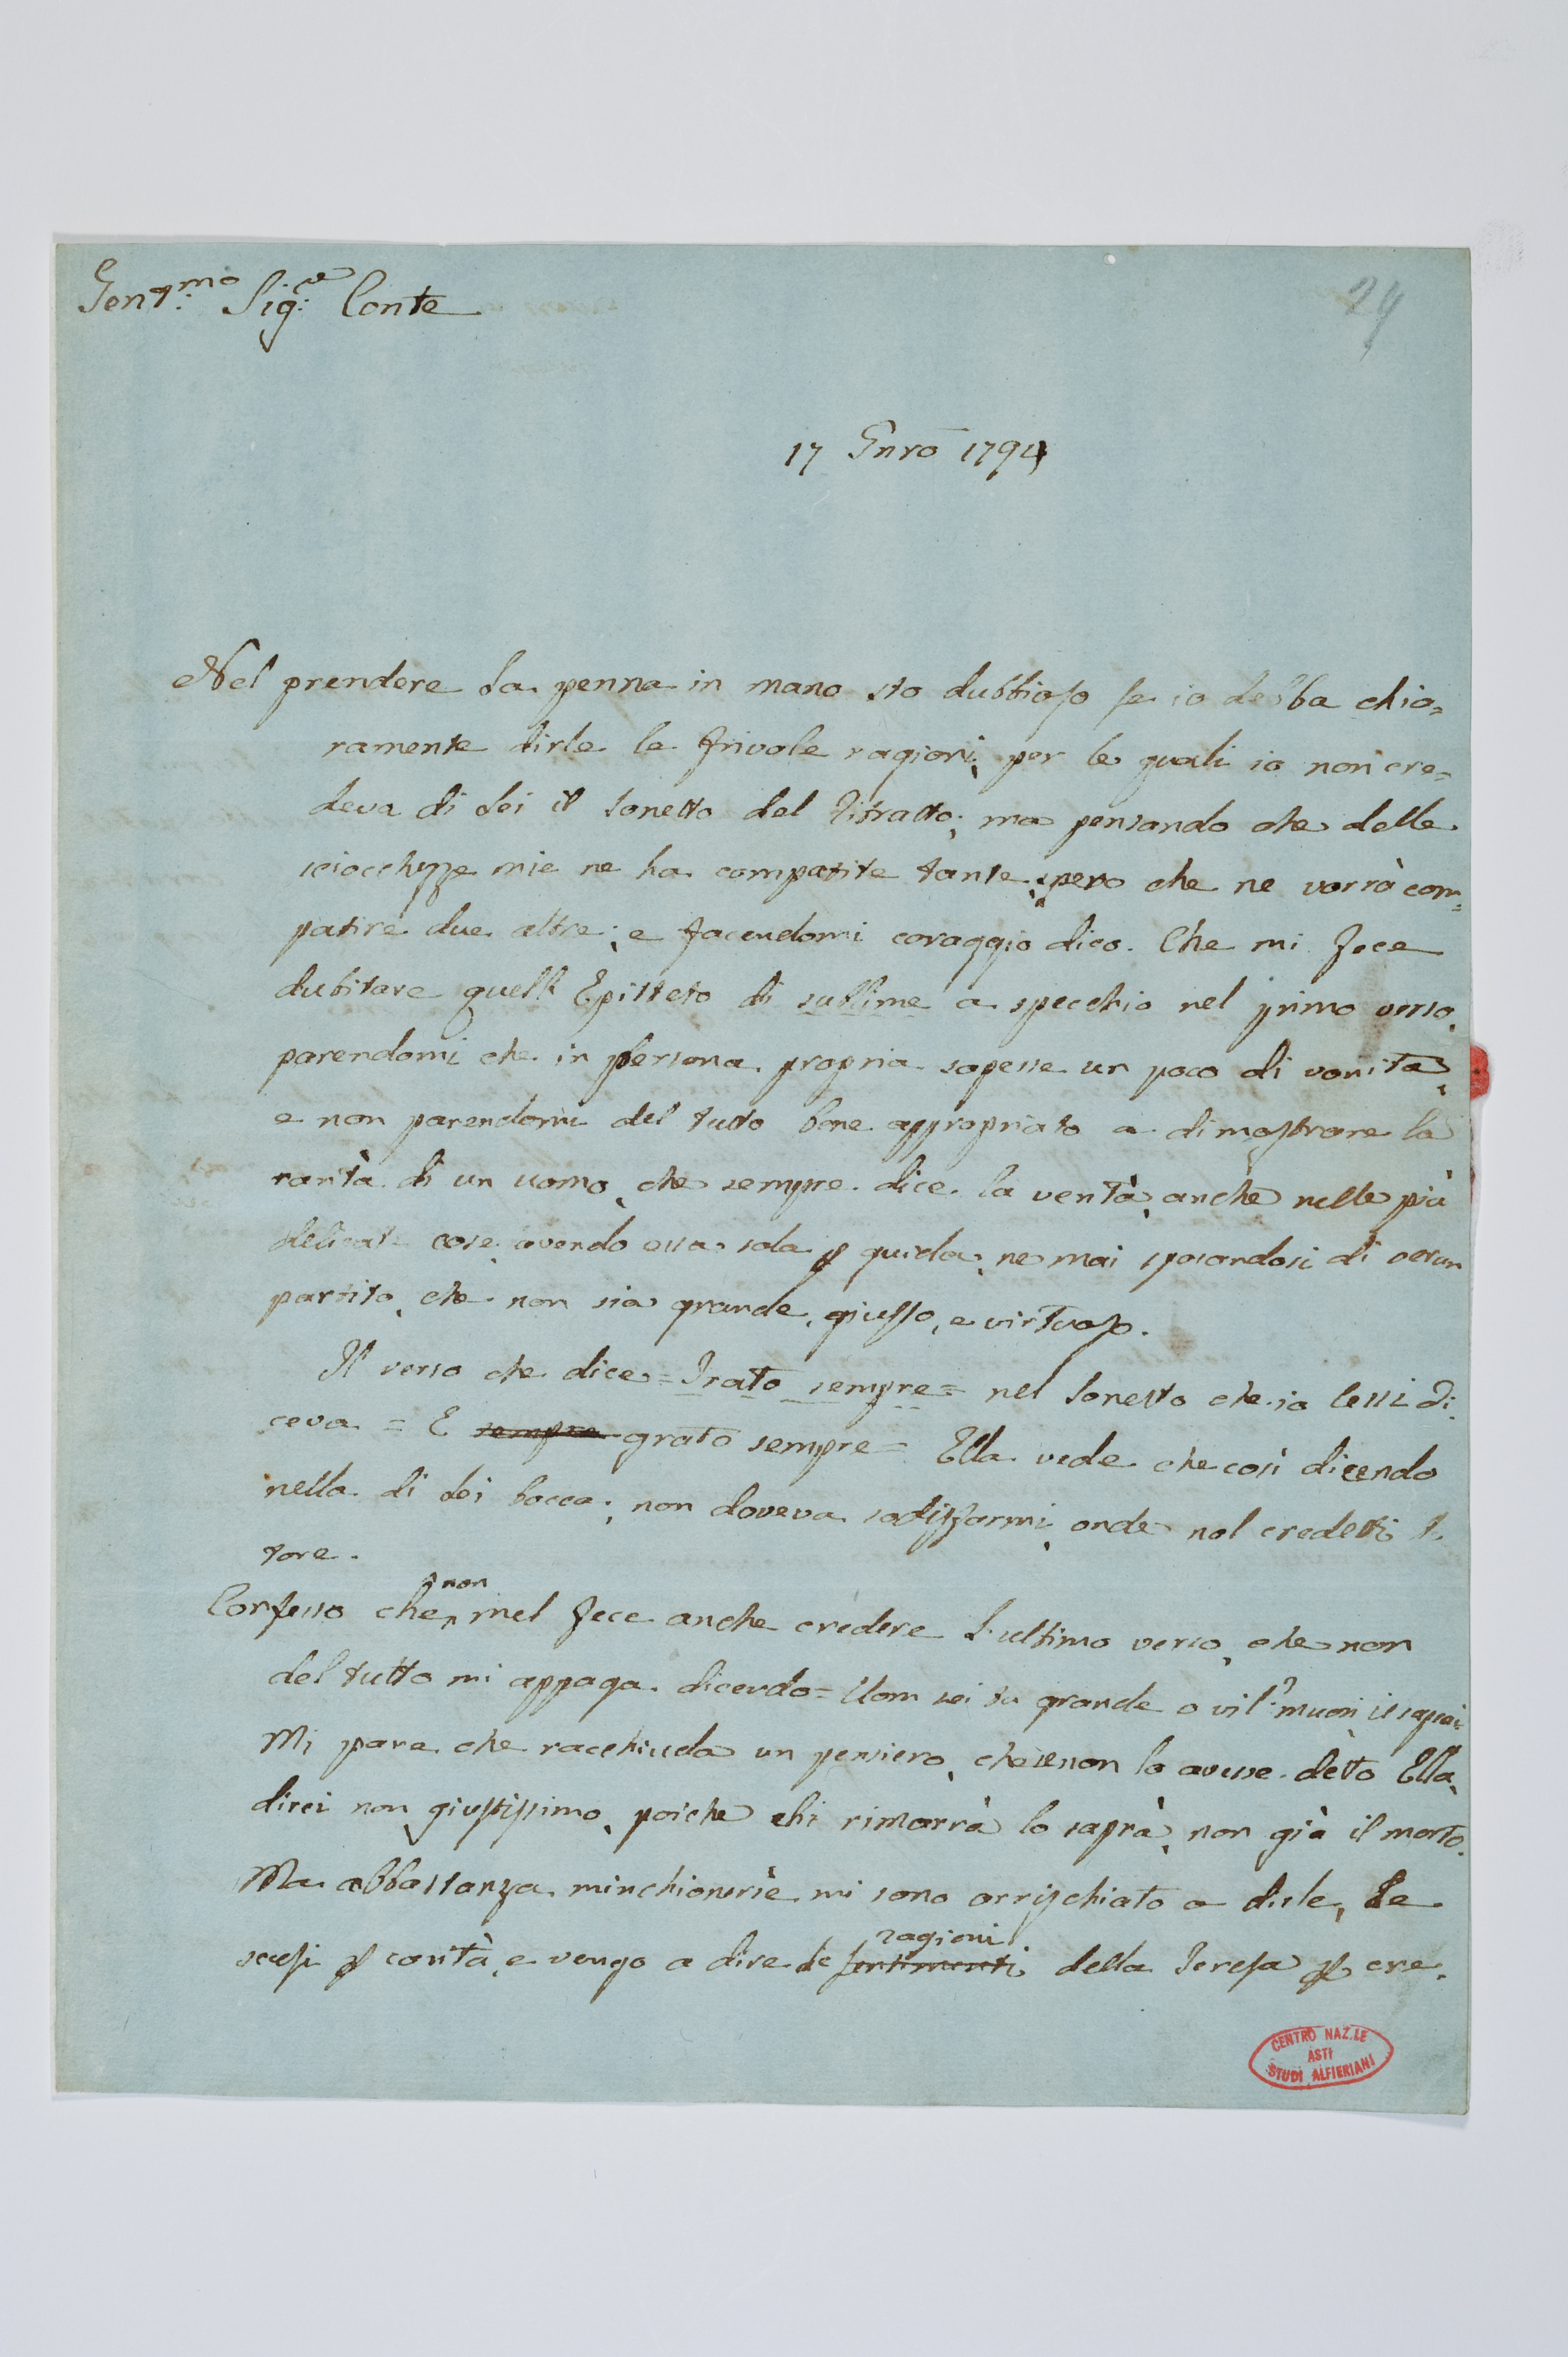 Gent.mo Sig.re Conte
29
17 Gnro 1794
Nel prendere la penna in mano sto dubbioso se io debba chia=
ramente dirle le frivole ragioni, per le quali io non cre=
deva di Lei il Sonetto del Ritratto; ma pensando che delle
sciocchezze mie ne ha compatite tante, spero che ne vorrà com=
patire due altre; e facendomi coraggio dico. Che mi fece
dubitare quell' Epitteto di sublime a specchio nel primo verso,
parendomi che in persona propria sapesse un poco di vanità,
e non parendomi del tutto bene appropriato a dimostrare la
rarità di un uomo, che sempre dice la verità, anche nelle più
delicate cose, avendo essa sola p guida, ne mai sposandosi di verun
partito, che non sia grande, giusto, e virtuoso.
Il verso che dice = Irato sempre = nel Sonetto che io lessi di=
ceva = E sempre grato sempre = Ella vede che così dicendo
nella di Lei bocca; non doveva sodisfarmi, onde nol credetti
Confesso che non mel fece anche credere l'ultimo verso, che non
del tutto mi appaga dicendo = Uom sei tu grande o vil? muori il saprai
Mi pare che racchiuda un pensiero, che se non lo avesse detto Ella,
direi non giustissimo, poiche chi rimarrà lo saprà, non già il morto.
Ma abbastanza minchionerie mi sono arrischiato a dirle, Le
scusi p carità, e vengo a dire le sentimenti ragioni della Teresa p cre=
CENTRO NAZ.LE
ASTI
STUDI ALFIERIANI